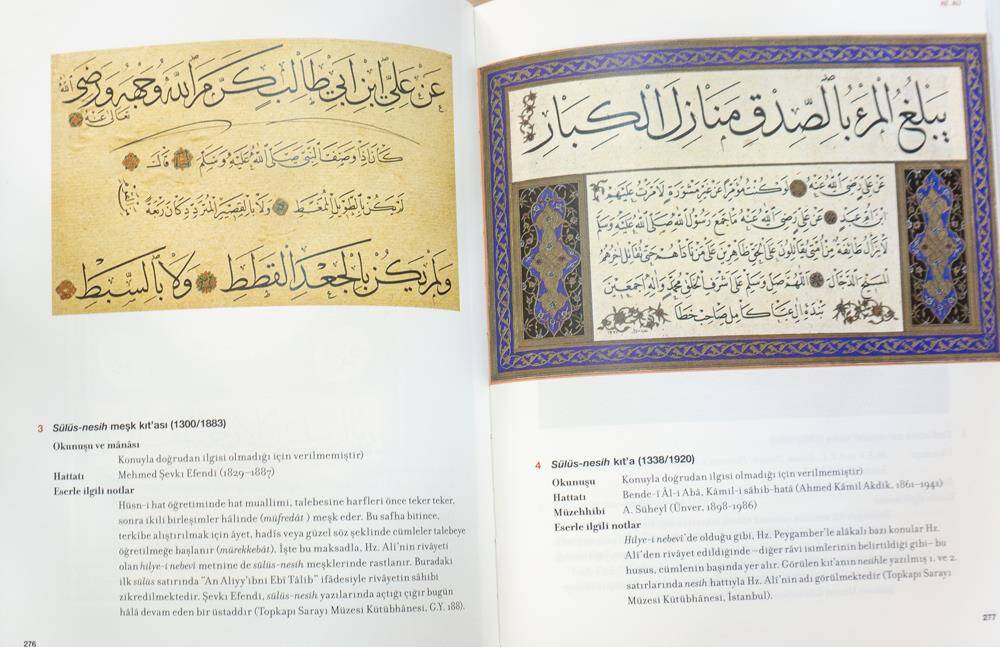 عَنْ عَلِيِّ ابْنِ اَبِي طَالِبٍ كَرَّمَ اللّٰهُ وَجْهَهُ وَرَضِيَ اللّٰهُ
تَعَالٰى عَنْهُ
كَانَ اِذَا وَصَفَ النَّبِيَّ صَلَّى اللّٰهُ عَلَيْهِ وَسَلَّمَ قَالَ
لَمْ يَكُنْ بِالطَّوِيلِ الْمُمَّغِطِ وَلَا بِالْقَصِيرِ الْمُتَرَدِّدِ وَكَانَ رَبْعَةً
وَلَمْ يَكُنْ بِالْجَعْدِ الْقَطَطِ وَلَا بِالسَّبِطِ
3 Sülüs-nesih meşk kıt'ası (1300/1883)
Okunuşu ve mânâsı
Konuyla doğrudan ilgisi olmadığı için verilmemiştir)
Hattatı Mehmed Şevkı Efendi (1829–1887)
Eserle ilgili notlar
Hüsn-i hat öğretiminde hat muallimi, talebesine harfleri önce teker teker,
sonra ikili birleşimler hâlinde (müfredât ) meşk eder. Bu safha bitince,
terkibe alıştırmak için âyet, hadîs veya güzel söz şeklinde cümleler talebeye
öğretilmeğe başlanır (mürekkebât). İşte bu maksadla, Hz. Alî'nin rivâyeti
olan hilye-i nebevî metnine de sülüs-nesih meşklerinde rastlanır. Buradaki
ilk sülüs satırında "An Aliyy'ibni Ebî Tâlib" ifadesiyle rivâyetin sâhibi
zikredilmektedir. Şevkı Efendi, sülüs-nesih yazılarında açtığı çığır bugün
hâlâ devam eden bir üstaddır (Topkapı Sarayı Müzesi Kütübhânesi, G.Y. 188).
276
يَبْلُغُ الْمَرْءُ بِالصِّدْقِ مَنَازِلَ الْكِبَارِ
عَنْ عَلِيٍّ رَضِيَ اللّٰهُ عَنْهُ لَوْ كُنْتُ مُؤَمِّرًا عَنْ غَيْرِ مَشْوَرَةٍ لَاَمَّرْتُ عَلَيْهِمْ
ابْنَ اُمِّ عَبْدٍ عَنْ عَلِيٍّ رَضِيَ اللّٰهُ عَنْهُ مَا جَمَعَ رَسُولُ اللّٰهِ صَلَّى اللّٰهُ عَلَيْهِ وَسَلَّمَ
لَا يَزَالُ طَائِفَةٌ مِنْ اُمَّتِي يُقَاتِلُونَ عَلَى الْحَقِّ ظَاهِرِينَ عَلٰى مَنْ نَاوَاَهُمْ حَتّٰى يُقَاتِلَ اٰخِرُهُمُ
الْمَسِيحَ الدَّجَّالَ اَللّٰهُمَّ صَلِّ وَسَلِّمْ عَلٰى شَرَفِ الْخَلْقِ مُحَمَّدٍ وَاٰلِهِ اَجْمَعِينَ
بَنْدَهٔ اٰلِ عَبَا كَامِلِ صَاحِبْ خَطَا
4 Sülüs-nesih kıt'a (1338/1920)
Okunuşu Konuyla doğrudan ilgisi olmadığı için verilmemiştir)
Hattatı Bende-i Âl-i Abâ, Kâmil-i sâhib-hatâ (Ahmed Kâmil Akdik, 1861–1941)
Müzehhibi A. Süheyl (Ünver, 1898–1986)
Eserle ilgili notlar
Hilye-i nebevî'de olduğu gibi, Hz. Peygamber'le alâkalı bazı konular Hz.
Alî'den rivâyet edildiğinde –diğer râvi isimlerinin belirtildiği gibi– bu
husus, cümlenin başında yer alır. Görülen kıt'anın nesihle yazılmış 1. ve 2.
satırlarında nesih hattıyla Hz. Alî'nin adı görülmektedir (Topkapı Sarayı
Müzesi Kütübhânesi, İstanbul).
277